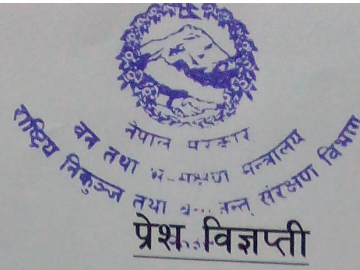 नेपाल सरकार
वन तथा भू-संरक्षण मन्त्रालय
राष्ट्रिय निकुञ्ज तथा वन्यजन्तु संरक्षण विभाग
प्रेश विज्ञप्ती